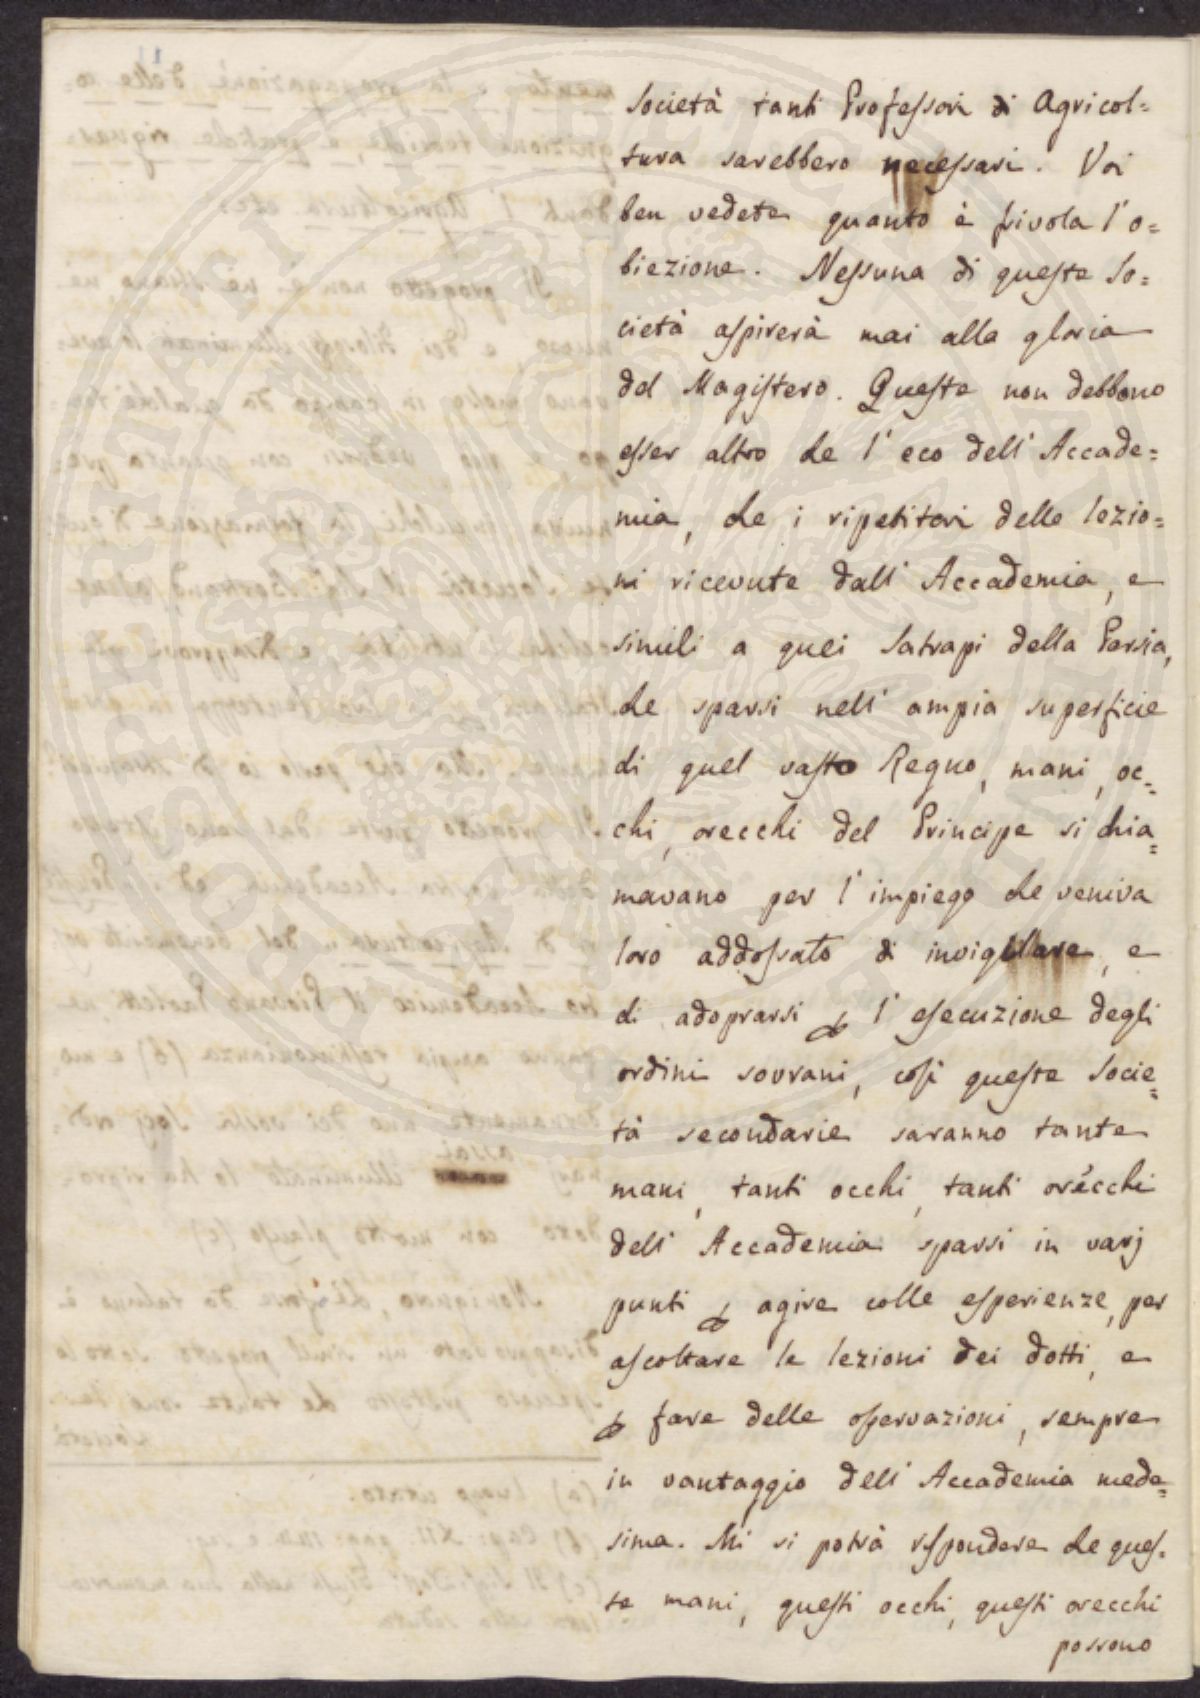 Società tanti Professori di Agricol=
tura sarebbero necessari. Voi
ben vedete quanto è frivola l'o=
biezione. Nessuna di queste So=
cietà aspirerà mai alla gloria
del Magistero. Queste non debbono
esser altro che l'eco dell'Accade=
mia, che i ripetitori delle lezio=
ni ricevute dall'Accademia, e
simili a quei Satrapi della Persia,
che sparsi nell'ampia superficie
di quel vasto Regno, mani, oc=
chi, orecchi del Principe si chia=
mavano per l'impiego che veniva
loro addossato di invigilare, e
di adoprarsi p l'esecuzione degli
ordini sovrani, così queste Socie=
tà secondarie saranno tante
mani, tanti occhi, tanti orecchi
dell'Accademia sparsi in varj
punti p agire colle esperienze, per
ascoltare le lezioni dei dotti, e
p fare delle osservazioni, sempre
in vantaggio dell'Accademia mede=
sima. Mi si potrà rispondere che ques=
te mani, questi occhi, questi orecchi
possono